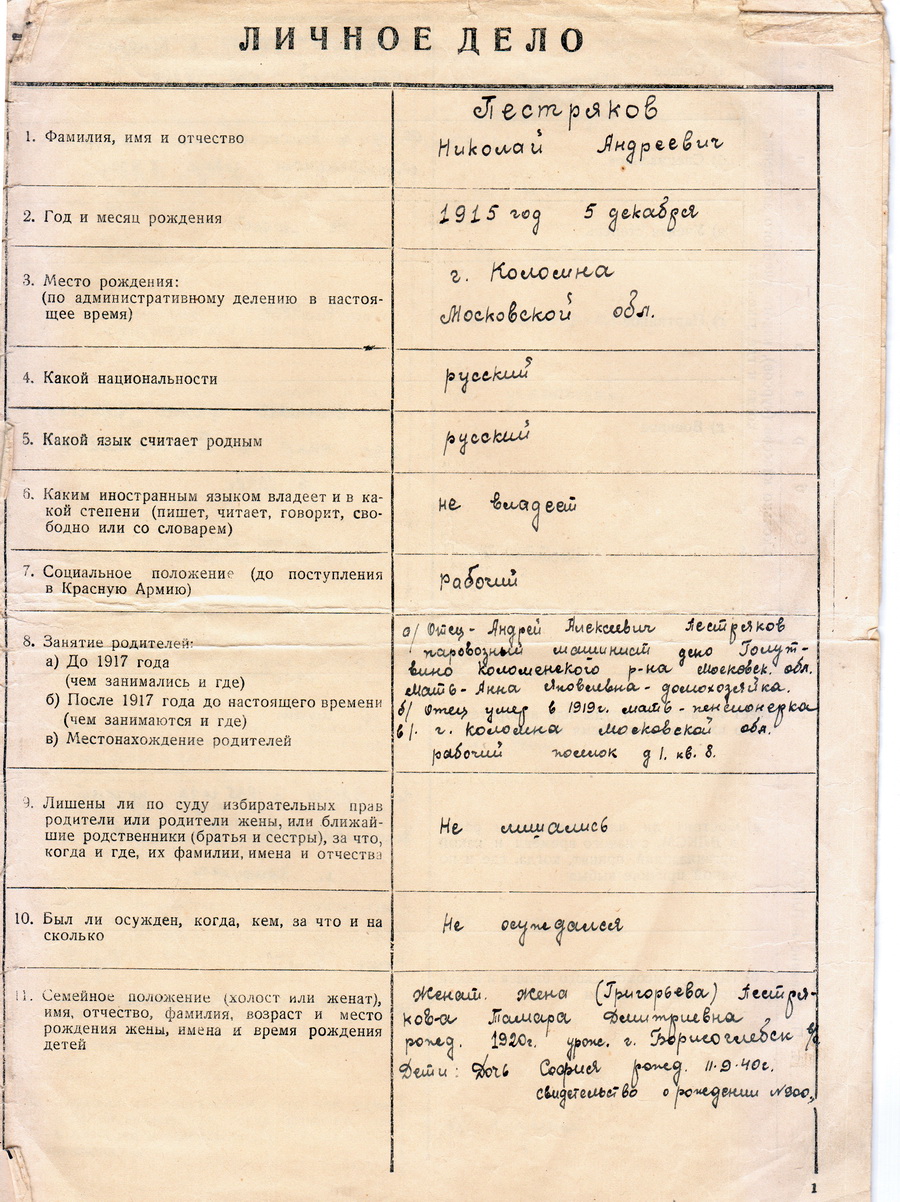 ЛИЧНОЕ ДЕЛО
1. Фамилия, имя и отчество
Пестряков
Николай Андреевич
2. Год и месяц рождения
1915 год 5 декабря
3. Место рождения:
(по административному делению в настоя-
щее время)
г. Коломна
Московской обл.
4. Какой национальности
русский
5. Какой язык считает родным
русский
6. Каким иностранным языком владеет и в ка-
кой степени (пишет, читает, говорит, сво-
бодно или со словарем)
не владеет
7. Социальное положение (до поступления
в Красную Армию)
рабочий
8. Занятие родителей:
а) До 1917 года
(чем занимались и где)
б) После 1917 года до настоящего времени
(чем занимаются и где)
в) Местонахождение родителей
а/ Отец - Андрей Алексеевич Пестряков
паровозный машинист депо Голут-
вино Коломенского р-на Московск. обл.
Мать - Анна Яковлевна - домохозяйка.
б/ Отец умер в 1919г. мать - пенсионерка
в/. г. Коломна Московской обл.
рабочий поселок д 1. кв. 8.
9. Лишены ли по суду избирательных прав
родители или родители жены, или ближай-
шие родственники (братья и сестры), за что,
когда и где, их фамилии, имена и отчества
Не лишались
10. Был ли осужден, когда, кем, за что и на
сколько
Не осуждался
11. Семейное положение (холост или женат),
имя, отчество, фамилия, возраст и место
рождения жены, имена и время рождения
детей
Женат. Жена (Григорьева) Пестря-
ков-а Тамара Дмитриевна
рожд. 1920г. урож. г. Борисоглебск
Дети: Дочь София рожд. 11·9·40г.
свидетельство о рождении №900.
1